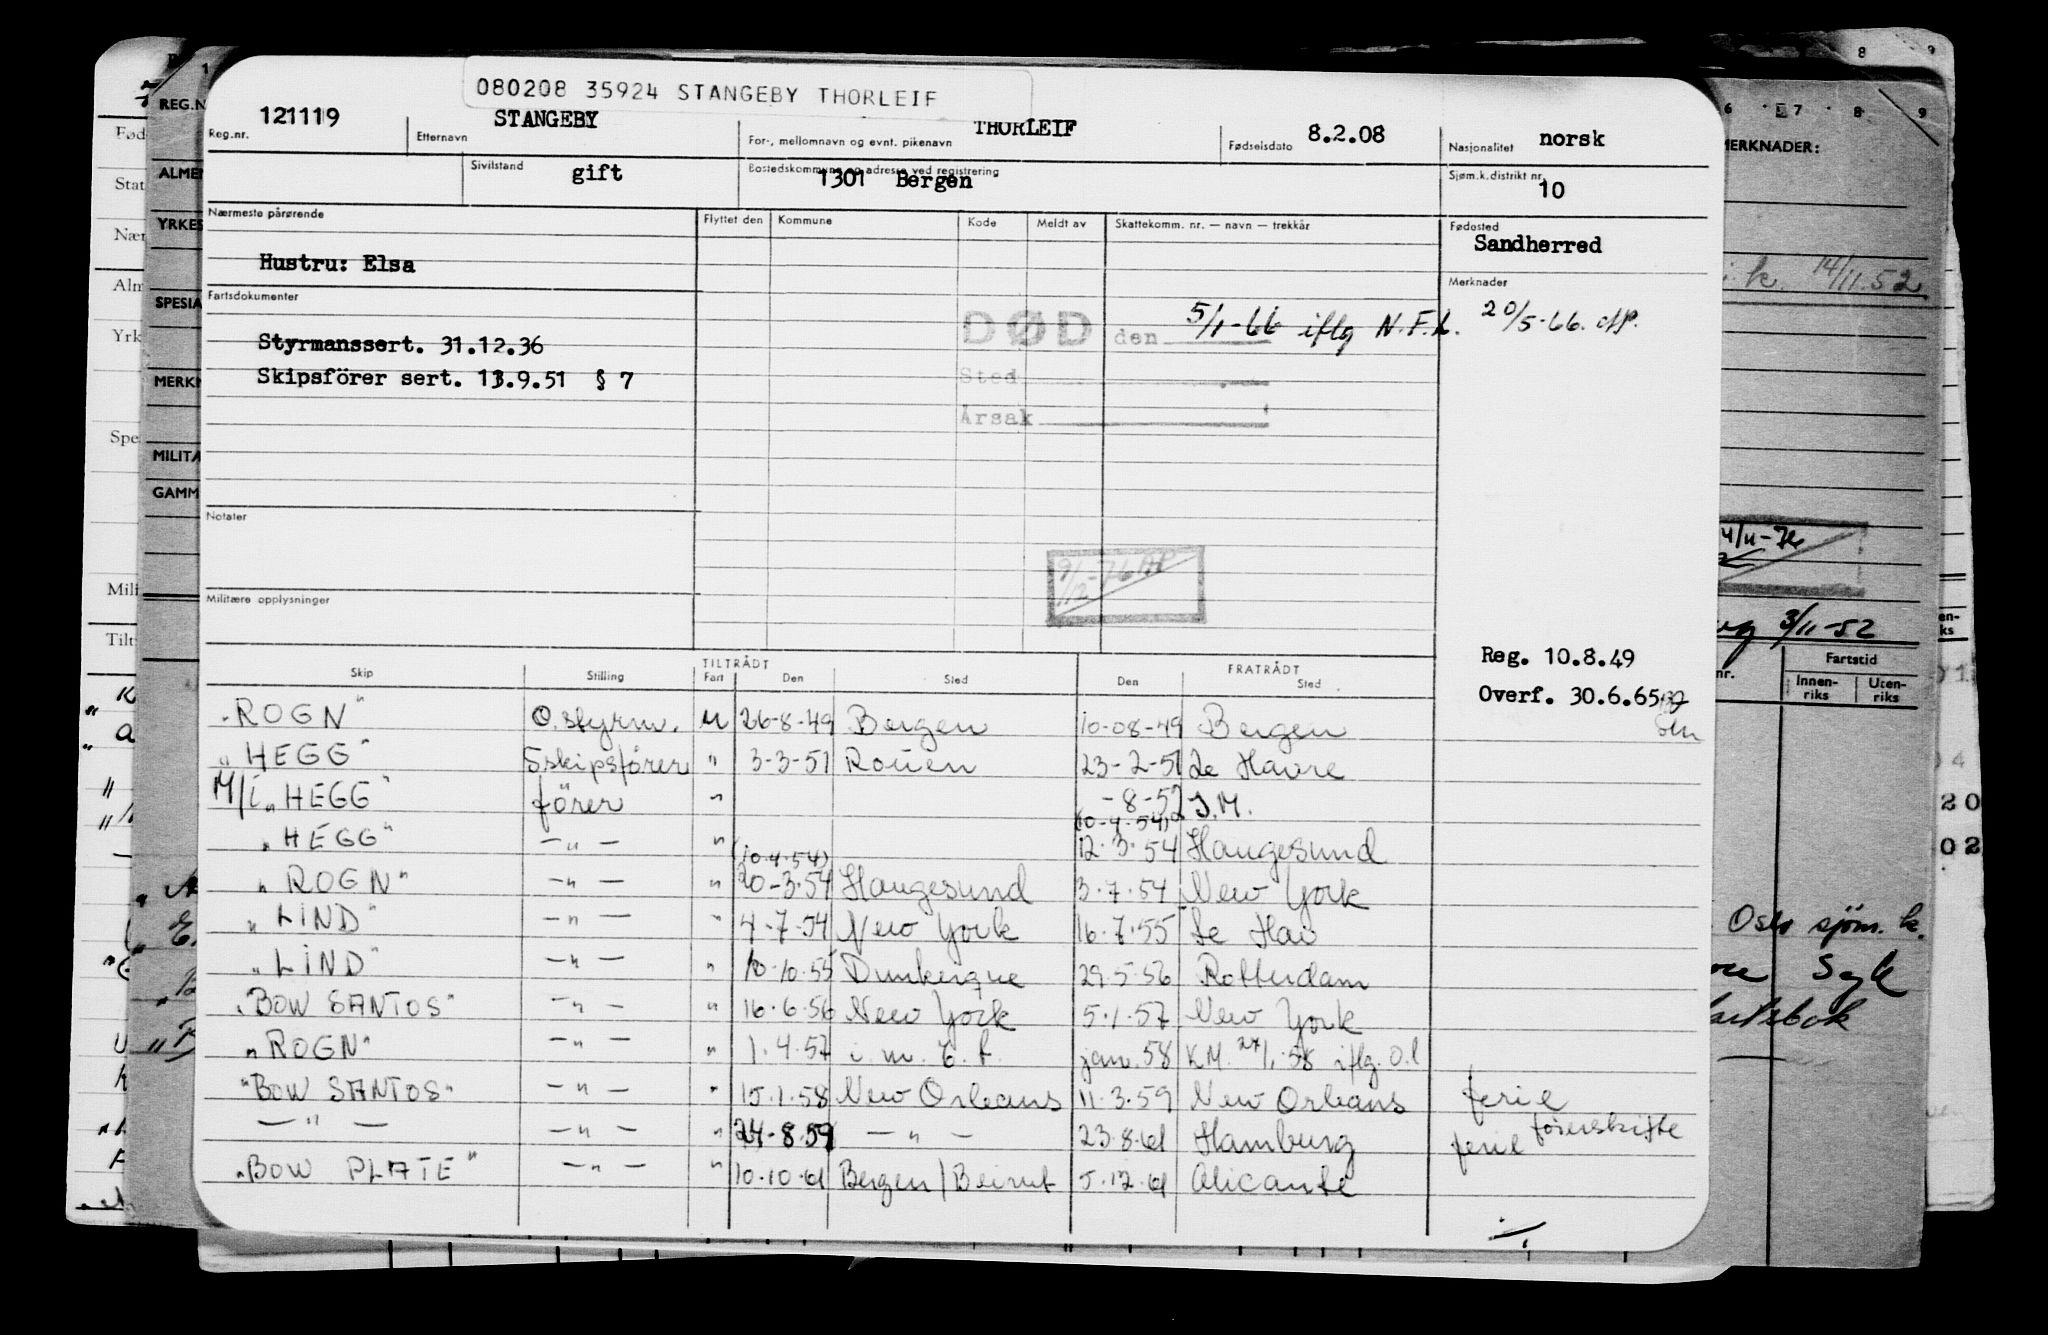 080208 35924 STANGEBY THORLEIF
121119 STANGEBY THORLEIF 8.2.08 norsk
Reg.nr. Etternavn For-, mellomnavn og evnt. pikenavn Fødselsdato Nasjonalitet
Sivilstand gift Bostedskommune og adresse ved registrering 1301 Bergen Sjøm.k.distrikt nr. 10
Nærmeste pårørende Flyttet den Kommune Kode Meldt av Skattekomm. nr. — navn — trekkår Fødested
Sandherred
Hustru: Elsa
Fartsdokumenter Merknader
DØD den 5/1-66 iflg N.F.L. 20/5-66.
Styrmanssert. 31.12.36
Skipsförer sert. 13.9.51 § 7
Sted
Årsak
Notater
9/12-76
Militære opplysninger
Reg. 10.8.49
Overf. 30.6.65
TILTRÅDT FRATRÅDT
Skip Stilling Fart Den Sted Den Sted
"ROGN" O.styrm. U 26-8-49 Bergen 10-08-49 Bergen
"HEGG" Sskipsförer " 3-3-51 Rouen 23-2-51 Le Havre
M/T "HEGG" förer " -8-52 S.M.
(10-4-54)
"HEGG" —"— " 12.3.54 Haugesund
(10.4.54)
"ROGN" —"— " 20-3.54 Haugesund 3.7.54 New York
"LIND" —"— " 4-7-54 New York 16.7.55 Le Hav
"LIND" —"— " 10.10.55 Dunkerque 29.5.56 Rotterdam
"BOW SANTOS" —"— " 16.6.56 New York 5.1.57 New York
"ROGN" —"— " 1.4.57 i.m. t.f. jan.58 KM. 27/1.58 iflg. O.l
"BOW SANTOS" —"— " 15.1.58 New Orleans 11.3.59 New Orleans ferie
—"— —"— " 24-8.59 —"— 23.8.61 Hamburg ferie förerskifte
"BOW PLATE" —"— " 10.10.61 Bergen/Beirut 5.12.61 Alicante
REG.N
ALMEN
YRKES
SPESIA
MERKN
MILITÆ
GAMM
Fød
Stat
Nær
Alm
Yrk
Spe
Mili
Tilt
MERKNADER:
14/11.52
4/11-76
3/11-52
Fartstid
Innen-
riks
Uten-
riks
Oslo sjöm. k.
Syk